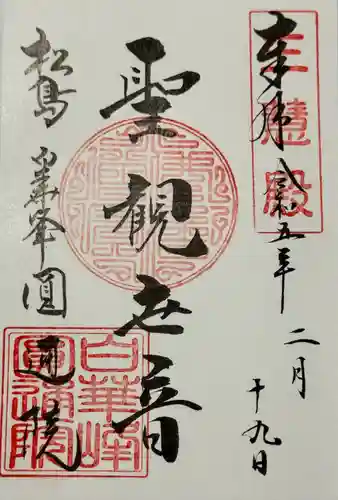 奉拝 令和五年 二月
十九日
三慧殿
聖観世音
松島 白華峰 圓
通院
白華峰
圓通院